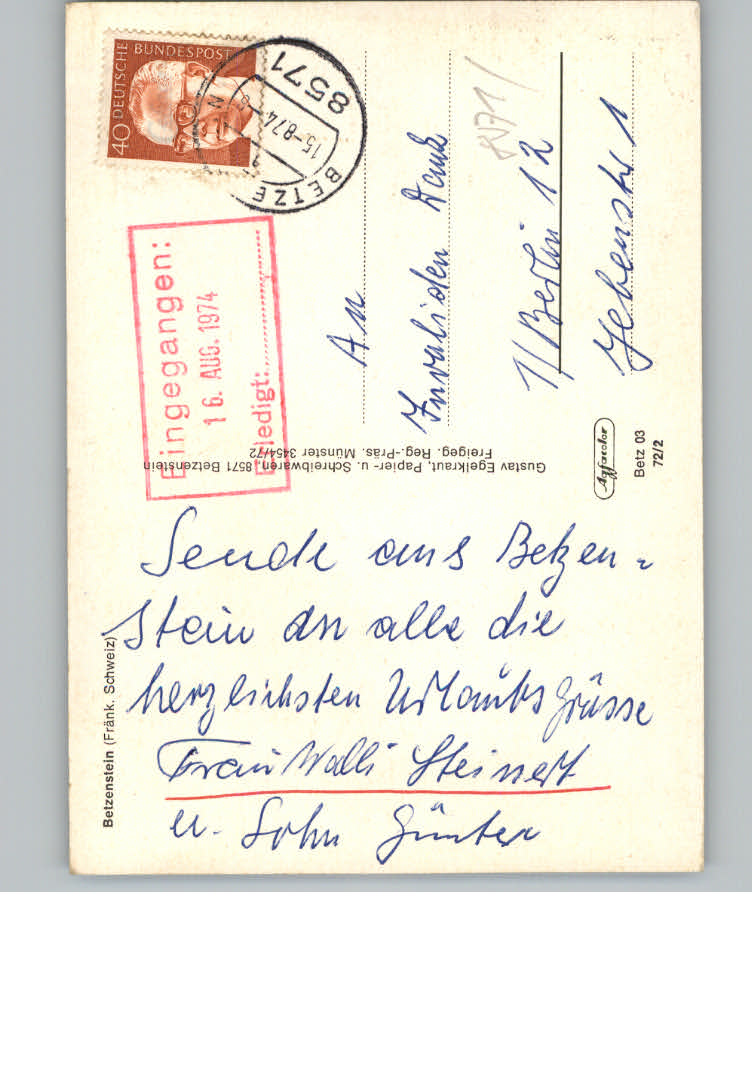 Betzenstein (Fränk. Schweiz)
Sende aus Betzen=
stein an alle die
herzlichsten Urlaubsgrüsse
Frau Walli Steinert
u. Sohn Günter
Gustav Egelkraut, Papier- u. Schreibwaren, 8571 Betzenstein
Freigeg. Reg.-Präs. Münster 3454/72
DEUTSCHE BUNDESPOST
40
8571
15.-8.74
BETZE
Eingegangen:
16. AUG. 1974
Erledigt:
An
Invaliden Dank
1/Berlin 12
Jebenstr 1
Agfacolor
Betz 03
72/2